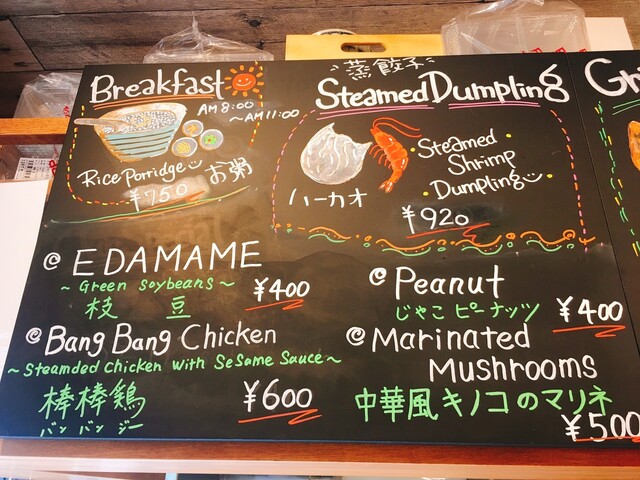 Breakfast
AM 8:00
~AM11:00
Rice Porridge
お粥
¥750
蒸餃子
Steamed Dumpling
Steamed
Shrimp
Dumpling
ハーカオ
¥920
EDAMAME
~Green Soybeans~
枝 豆
¥400
Bang Bang Chicken
~Steamded Chicken with Sesame Sauce~
棒棒鶏
バンバンジー
¥600
Peanut
じゃこピーナッツ
¥400
Marinated
Mushrooms
中華風キノコのマリネ
¥500